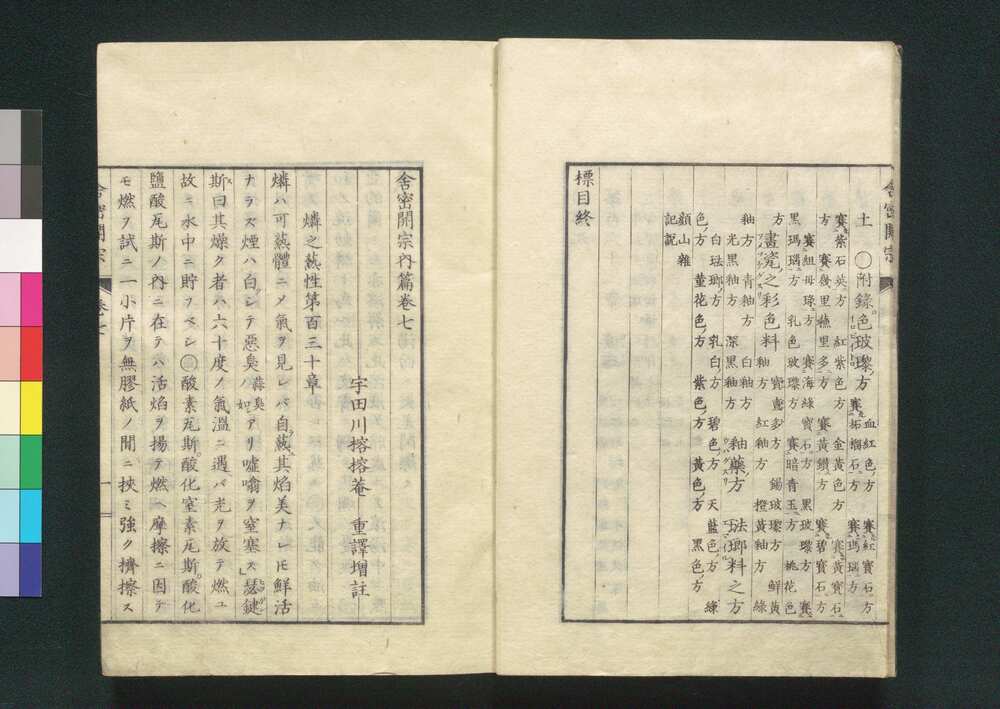 舎密開宗
土　○附錄色玻瓈方　血紅色ノ方　賽紅寶石ノ方
賽紫石英方　紅紫色方　金黃色方　賽黃寶石
方　賽後里
賽拓榴石方　賽瑪瑙方
賽紐母瑑方　賽海綠寶石方　黑玻瓈方　賽
黑瑪瑙方　乳色玻瓈方　賽暗青玉方　桃花色
方
畫瓷之彩色料　釉方　寶鹵多方　錫玻瓈方　鮮黃
釉方　青釉方　白釉方　紅釉方　橙黃釉方　綠
光黑釉方　深黑釉方　釉藥ノ方　法瑯料之方
白琺瑯ノ方　乳白方　碧色ノ方　天藍色ノ方　綠
色ノ方　菫花色ノ方　紫色ノ方　黃色ノ方　黑色ノ方
顧山雜
記說
標目終
舎密開宗內篇卷七
宇田川榕榕菴　重譯增註
燐之𤍠性第百三十章
燐ハ可𤍠體ニメ氣ヲ見レバ自𤍠其焰美ナレ𪜈鮮活
ナラズ煙ハ白クシテ惡臭ノ如蒜臭アリ噓噏ヲ窒塞ス瑟鍵
斯曰其燥ク者ハ六十度ノ氣溫ニ遇バ光ヲ放テ燃ユ
故ニ水中ニ貯フベシ○酸素瓦斯酸化窒素瓦斯酸化
鹽酸瓦斯ノ內ニ在テハ活焰ヲ揚テ燃ヘ摩擦ニ因テ
モ燃ヲ試ニ一小片ヲ無膠紙ノ間ニ挾ミ強ク擠擦ス
舎密開宗
卷七
一